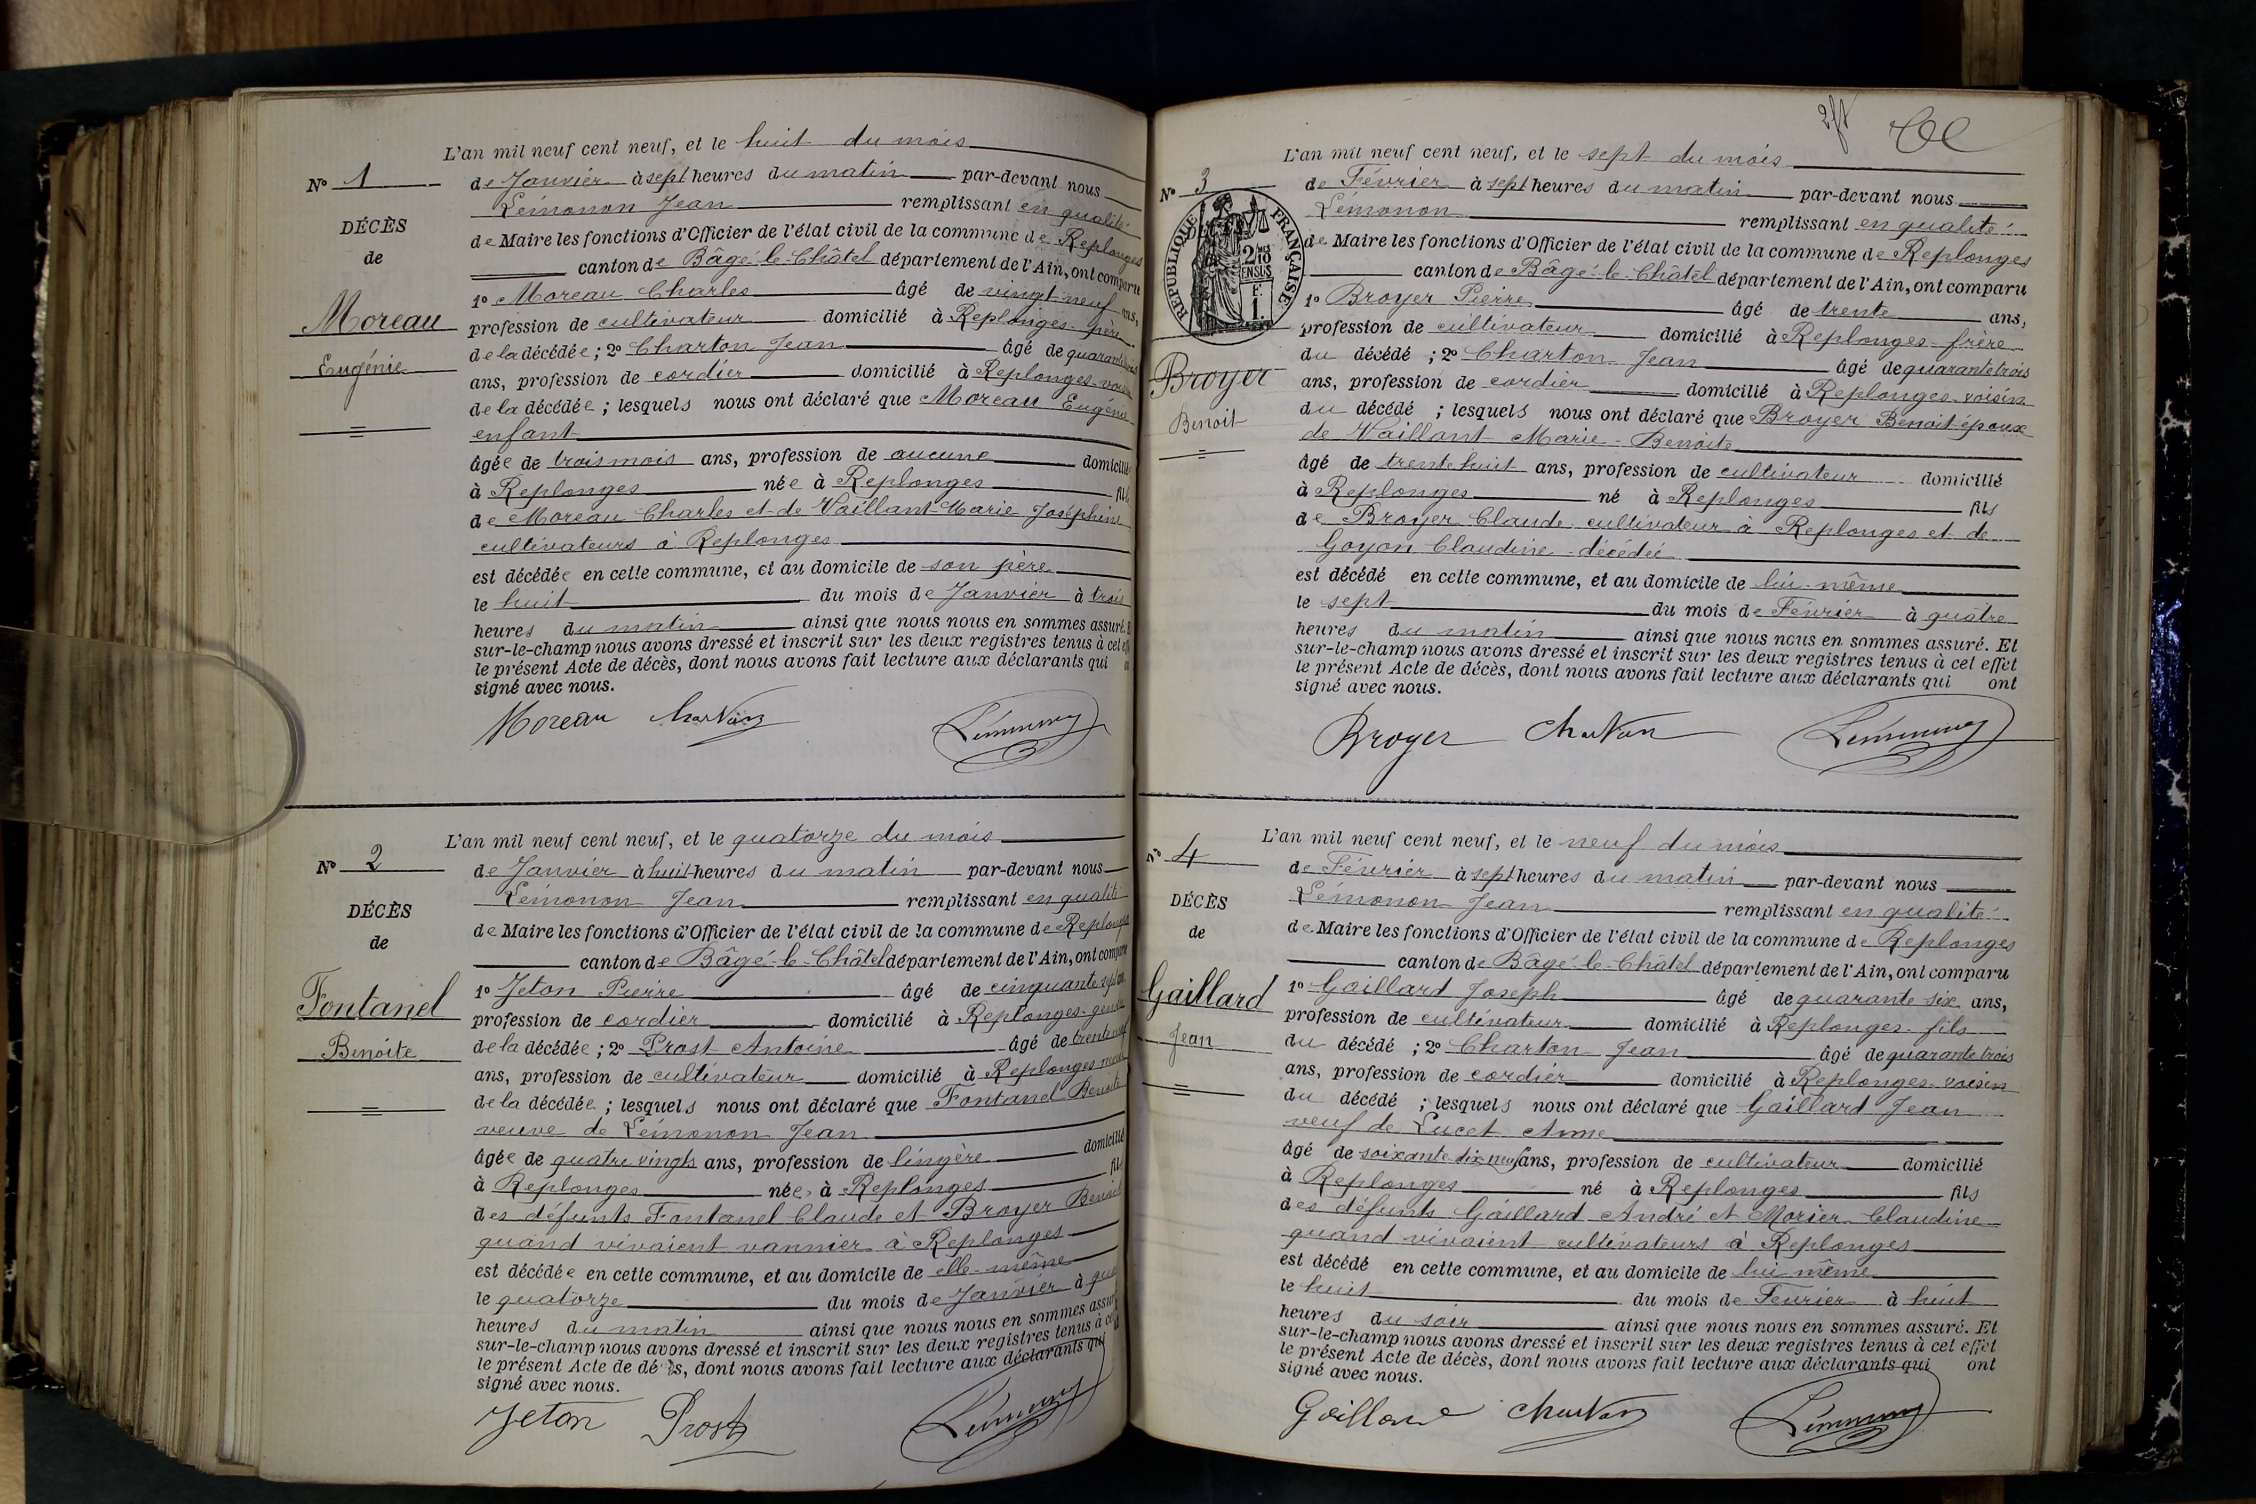 L'an mil neuf cent neuf, et le huit du mois
N° 1
de Janvier à sept heures du matin par-devant nous
Lémonon Jean remplissant en qualité
DÉCÈS
de Maire les fonctions d'Officier de l'état civil de la commune de Replonges
de
canton de Bâgé-le-Châtel département de l'Ain, ont comparu
1° Moreau Charles âgé de vingt-neuf ans,
Moreau
profession de cultivateur domicilié à Replonges père
de la décédée ; 2° Charton Jean âgé de
Eugénie
ans, profession de cordier domicilié à Replonges voisin
de la décédée ; lesquels nous ont déclaré que Moreau Eugénie
enfant
âgée de trois mois ans, profession de aucune domicilié
à Replonges née à Replonges fil
de Moreau Charles et de Vaillant Marie Joséphine
cultivateurs à Replonges
est décédée en cette commune, et au domicile de son père
le huit du mois de Janvier à trois
heures du matin ainsi que nous nous en sommes assuré. E
sur-le-champ nous avons dressé et inscrit sur les deux registres tenus à cet eff
le présent Acte de décès, dont nous avons fait lecture aux déclarants qui
signé avec nous.
Moreau Charton Lémonon
L'an mil neuf cent neuf, et le quatorze du mois
N° 2
de Janvier à huit heures du matin par-devant nous
Lémonon Jean remplissant en qualité
DÉCÈS
de Maire les fonctions d'Officier de l'état civil de la commune de Replonges
de
canton de Bâgé-le-Châtel département de l'Ain, ont comparu
1° Jeton Pierre âgé de cinquante sept ans
Fontanel
profession de cordier domicilié à Replonges gendre
de la décédée ; 2° Prost Antoine âgé de
Benoîte
ans, profession de cultivateur domicilié à Replonges neveu
de la décédée ; lesquels nous ont déclaré que Fontanel Benoite
veuve de Lémonon Jean
âgée de quatre vingts ans, profession de lingère domicilié
à Replonges née à Replonges fil
des défunts Fontanel Claude et Broyer Benoite
quand vivaient vannier à Replonges
est décédée en cette commune, et au domicile de elle-même
le quatorze du mois de Janvier à
heures du matin ainsi que nous nous en sommes assuré
sur-le-champ nous avons dressé et inscrit sur les deux registres tenus à ce
le présent Acte de décès, dont nous avons fait lecture aux déclarants qui
signé avec nous.
Jeton Prost Lémonon
L'an mil neuf cent neuf, et le sept du mois
N° 3
de Février à sept heures du matin par-devant nous
Lémonon remplissant en qualité
RÉPUBLIQUE FRANÇAISE
2/10 EN SUS
F.
1.
de Maire les fonctions d'Officier de l'état civil de la commune de Replonges
canton de Bâgé-le-Châtel département de l'Ain, ont comparu
1° Broyer Pierre âgé de trente ans,
profession de cultivateur domicilié à Replonges frère
du décédé ; 2° Charton Jean âgé de quarante trois
Broyer
ans, profession de cordier domicilié à Replonges voisin
Benoit
du décédé ; lesquels nous ont déclaré que Broyer Benoit époux
de Vaillant Marie-Benoite
âgé de trente huit ans, profession de cultivateur domicilié
à Replonges né à Replonges fils
de Broyer Claude cultivateur à Replonges et de
Goyon Claudine décédée
est décédé en cette commune, et au domicile de lui-même
le sept du mois de Février à quatre
heures du matin ainsi que nous nous en sommes assuré. Et
sur-le-champ nous avons dressé et inscrit sur les deux registres tenus à cet effet
le présent Acte de décès, dont nous avons fait lecture aux déclarants qui ont
signé avec nous.
Broyer Charton Lémonon
L'an mil neuf cent neuf, et le neuf du mois
N° 4
de Février à sept heures du matin par-devant nous
Lémonon Jean remplissant en qualité
DÉCÈS
de Maire les fonctions d'Officier de l'état civil de la commune de Replonges
de
canton de Bâgé-le-Châtel département de l'Ain, ont comparu
1° Gaillard Joseph âgé de quarante six ans,
Gaillard
profession de cultivateur domicilié à Replonges fils
du décédé ; 2° Charton Jean âgé de quarante trois
Jean
ans, profession de cordier domicilié à Replonges voisin
du décédé ; lesquels nous ont déclaré que Gaillard Jean
veuf de Lucet Anne
âgé de soixante dix neuf ans, profession de cultivateur domicilié
à Replonges né à Replonges fils
des défunts Gaillard André et Morier Claudine
quand vivaient cultivateurs à Replonges
est décédé en cette commune, et au domicile de lui même
le huit du mois de Fevrier à huit
heures du soir ainsi que nous nous en sommes assuré. Et
sur-le-champ nous avons dressé et inscrit sur les deux registres tenus à cet effet
le présent Acte de décès, dont nous avons fait lecture aux déclarants qui ont
signé avec nous.
Gaillard Charton Lémonon